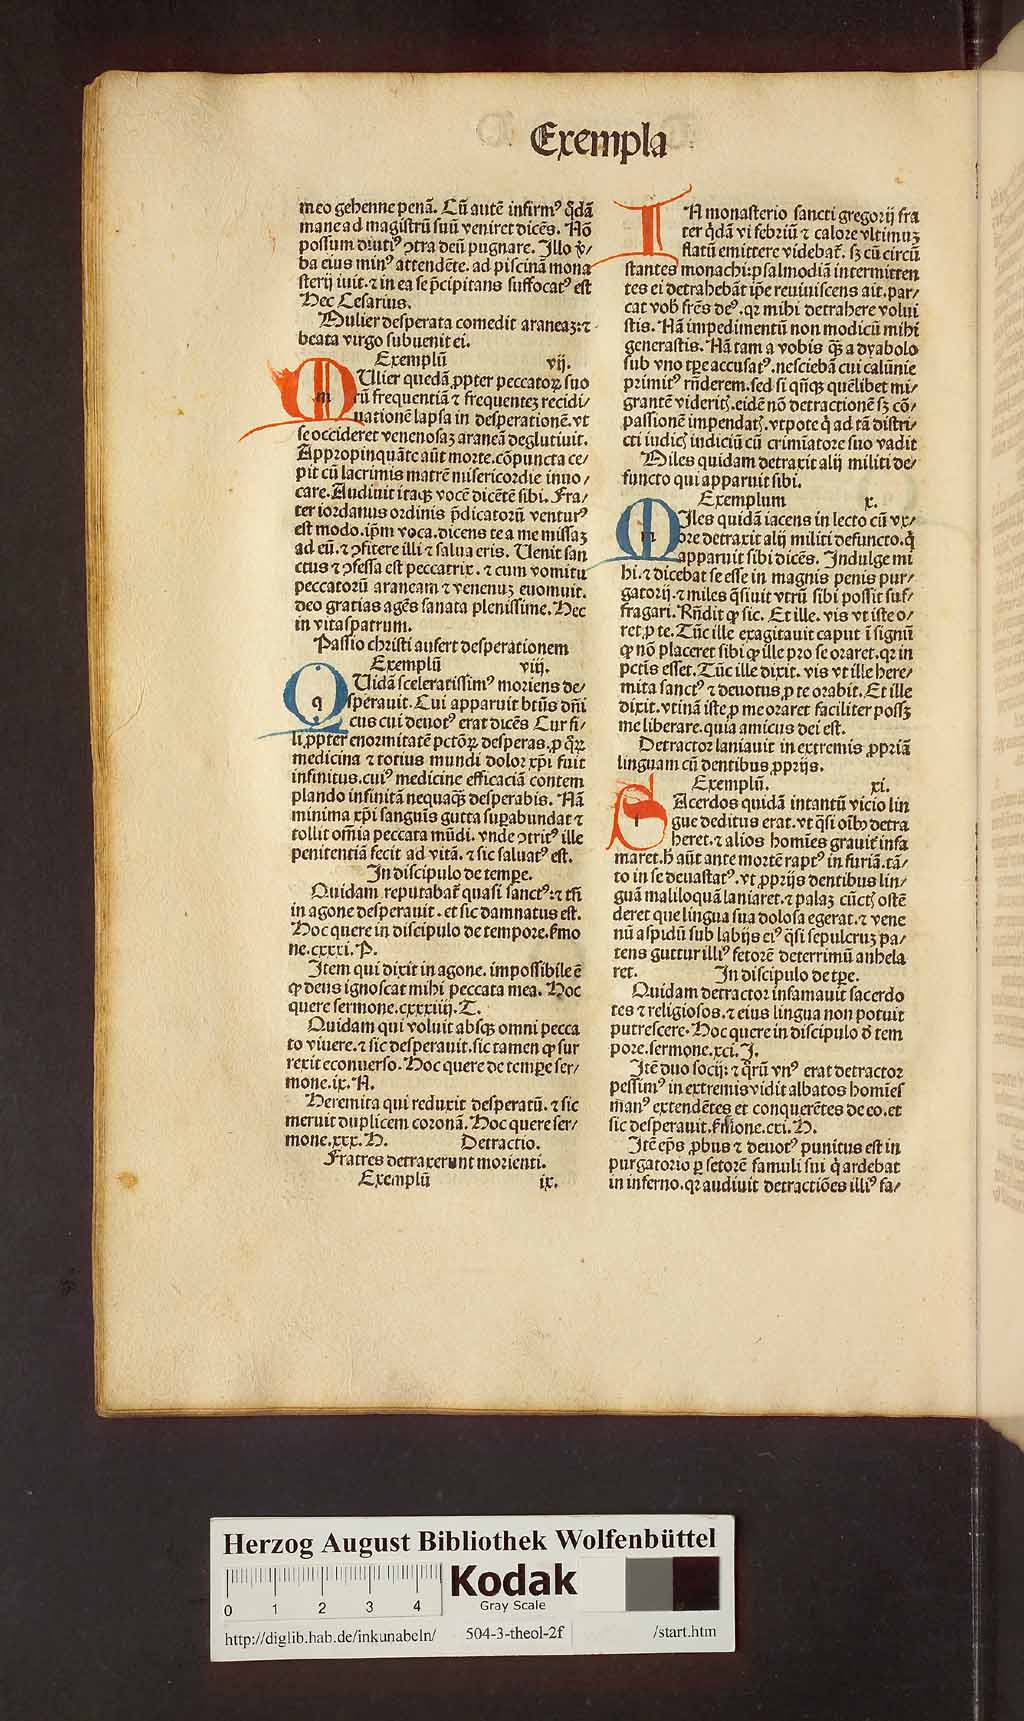 Exempla
meo gehenne penā. Cū autē infirmꝰ q̄dā
mane ad magistrū suū veniret dicēs. Nō
possum diutiꝰ ꝯtra deū pugnare. Illo v̄/
ba eius minꝰ attendēte. ad piscinā mona
sterij iuit. ⁊ in ea se p̄cipitans suffocatꝰ est
Hec Cesarius.
Mulier desperata comedit araneaꝫ: ⁊
beata virgo subuenit ei.
Exemplū vij.
MUlier quedā ꝓpter peccatoꝝ suo
rū frequentiā ⁊ frequenteꝫ recidi/
uationē lapsa in desperationē. vt
se occideret venenosaꝫ araneā deglutiuit.
Appropinquāte aūt morte. cōpuncta ce/
pit cū lacrimis matrē misericordie inuo/
care. Audiuit itaqꝫ vocē dicētē sibi. Fra/
ter iordanus ordinis p̄dicatorū venturꝰ
est modo. ip̄m voca. dicens te a me missaꝫ
ad eū. ⁊ ꝯfitere illi ⁊ salua eris. Uenit san
ctus ⁊ ꝯfessa est peccatrix. ⁊ cum vomitu
peccatorū araneam ⁊ venenuꝫ euomuit.
deo gratias agēs sanata plenissime. Hec
in vitaspatrum.
Passio christi aufert desperationem
Exemplū viij.
QUidā sceleratissimꝰ moriens de/
sperauit. Cui apparuit btūs dn̄i
cus cui deuotꝰ erat dicēs Cur fi/
li ꝓpter enormitatē pctōꝝ desperas. p q̄ꝝ
medicina ⁊ totius mundi dolor xp̄i fuit
infinitus. cuiꝰ medicine efficaciā contem
plando infinitā nequaqꝫ desperabis. Nā
minima xp̄i sanguīs gutta sup̲abundat ⁊
tollit om̄ia peccata mūdi. vnde ꝯtritꝰ ille
penitentiā fecit ad vitā. ⁊ sic saluatꝰ est.
In discipulo de temp̲e.
Quidam reputabat̄ quasi sanctꝰ: ⁊ tn̄
in agone desperauit. et sic damnatus est.
Hoc quere in discipulo de tempore. ẜmo
ne. cxxxi. P.
Item qui dixit in agone. impossibile ē
ꝙ deus ignoscat mihi peccata mea. Hoc
quere sermone. cxxxiiij. T.
Quidam qui voluit absqꝫ omni pecca
to viuere. ⁊ sic desperauit. sic tamen ꝙ sur
rexit econuerso. Hoc quere de temp̲e ser/
mone. ix. N.
Heremita qui reduxit desperatū. ⁊ sic
meruit duplicem coronā. Hoc quere ser/
mone. xxx. H. Detractio.
Fratres detraxerunt morienti.
Exemplū ix.
IN monasterio sancti gregorij fra
ter q̄dā vi febriū ⁊ calore vltimuꝫ
flatū emittere videbat̄. sꝫ cū circū
stantes monachi: psalmodiā intermitten
tes ei detrahebāt ip̄e reuiuiscens ait. par/
cat vob̄ frēs deꝰ. qꝛ mihi detrahere volui
stis. Nā impedimentū non modicū mihi
generastis. Nā tam a vobis qꝫ a dyabolo
sub vno tp̲e accusatꝰ. nesciebā cui calūnie
primitꝰ rn̄derem. sed si qn̄qꝫ quēlibet mi/
grantē videritꝭ. eidē nō detractionē sꝫ cō/
passionē impendatꝭ. vtpote q̄ ad tā distri/
cti iudicꝭ iudiciū cū crimīatore suo vadit
Miles quidam detraxit alij militi de/
functo qui apparuit sibi.
Exemplum x.
MIles quidā iacens in lecto cū vx/
ore detraxit alij militi defuncto. q̄
apparuit sibi dicēs. Indulge mi
hi. ⁊ dicebat se esse in magnis penis pur/
gatorij. ⁊ miles q̄siuit vtrū sibi possit suf/
fragari. Rn̄dit ꝙ sic. Et ille. vis vt iste o/
ret ꝓ te. Tūc ille exagitauit caput ī signū
ꝙ nō placeret sibi ꝙ ille pro se oraret. qꝛ in
pctīs esset. Tūc ille dixit. vis vt ille here/
mita sanctꝰ ⁊ deuotus ꝓ te orabit. Et ille
dixit. vtinā iste ꝓ me oraret faciliter possꝫ
me liberare. quia amicus dei est.
Detractor laniauit in extremis ꝓpriā
linguam cū dentibus ꝓprijs.
Exemplū. xi.
SAcerdos quidā intantū vicio lin
gue deditus erat. vt q̄si oībꝫ detra
heret. ⁊ alios homīes grauit̄ infa
maret. h̄ aūt ante mortē raptꝰ in furiā. tā/
to in se deuastatꝰ. vt ꝓprijs dentibus lin/
guā maliloquā laniaret. ⁊ palaꝫ cūctꝭ ostē
deret que lingua sua dolosa egerat. ⁊ vene
nū aspidū sub labijs eiꝰ q̄si sepulcruꝫ pa/
tens guttur illiꝰ fetorē deterrimū anhela
ret. In discipulo de tp̲e.
Quidam detractor infamauit sacerdo
tes ⁊ religiosos. ⁊ eius lingua non potuit
putrescere. Hoc quere in discipulo d̄ tem
pore. sermone. xci. J.
Itē duo socij: ⁊ q̄rū vnꝰ erat detractor
pessimꝰ in extremis vidit albatos homīes
manꝰ extendētes et conquerētes de eo. et
sic desperauit. ẜmone. cxi. H.
Itē ep̄s ꝓbus ⁊ deuotꝰ punitus est in
purgatorio p̲ fetorē famuli sui q̄ ardebat
in inferno. qꝛ audiuit detractiōes illiꝰ fa/
Herzog August Bibliothek Wolfenbüttel
0 1 2 3 4
Kodak
Gray Scale
http://diglib.hab.de/inkunabeln/ 504-3-theol-2f /start.htm